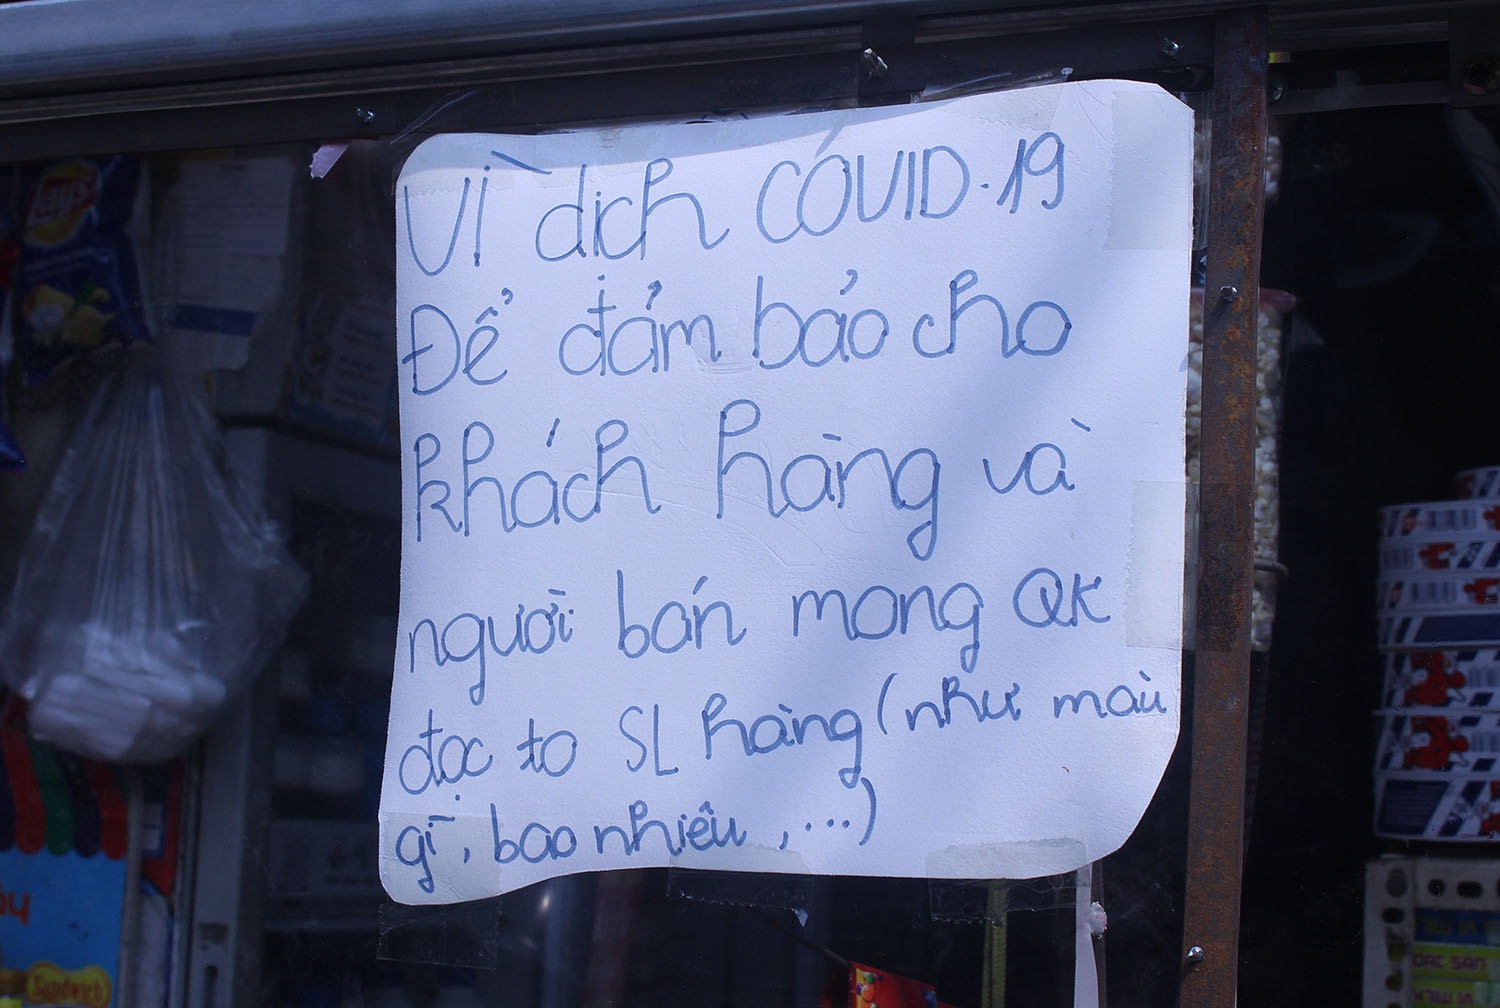 Vì dịch COVID-19
Để đảm bảo cho
khách hàng và
người bán mong QK
đọc to SL hàng (như màu
gì, bao nhiêu, ...)
Lay's
Sandwich
ĐẶC SẢN